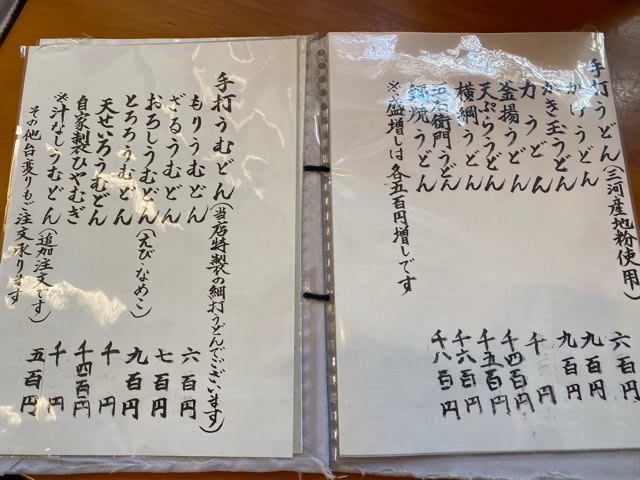 手打うどん(三河産地粉使用)
かけうどん 六百円
かき玉うどん 九百円
力うどん 九百円
釜揚うどん 千円
天ぷらうどん 千四百円
横綱うどん 千五百円
五右衛門うどん 千六百円
鍋焼うどん 千八百円
※盛増しは各五百円増しです
手打うむどん(当店特製の細打うどんでございます)
もりうむどん 六百円
ざるうむどん 七百円
おろしうむどん(えび・なめこ) 九百円
とろろうむどん 千円
天せいろうむどん 千四百円
自家製ひやむぎ 千円
※汁なしうむどん(追加注文です) 五百円
その他台変りもご注文承ります